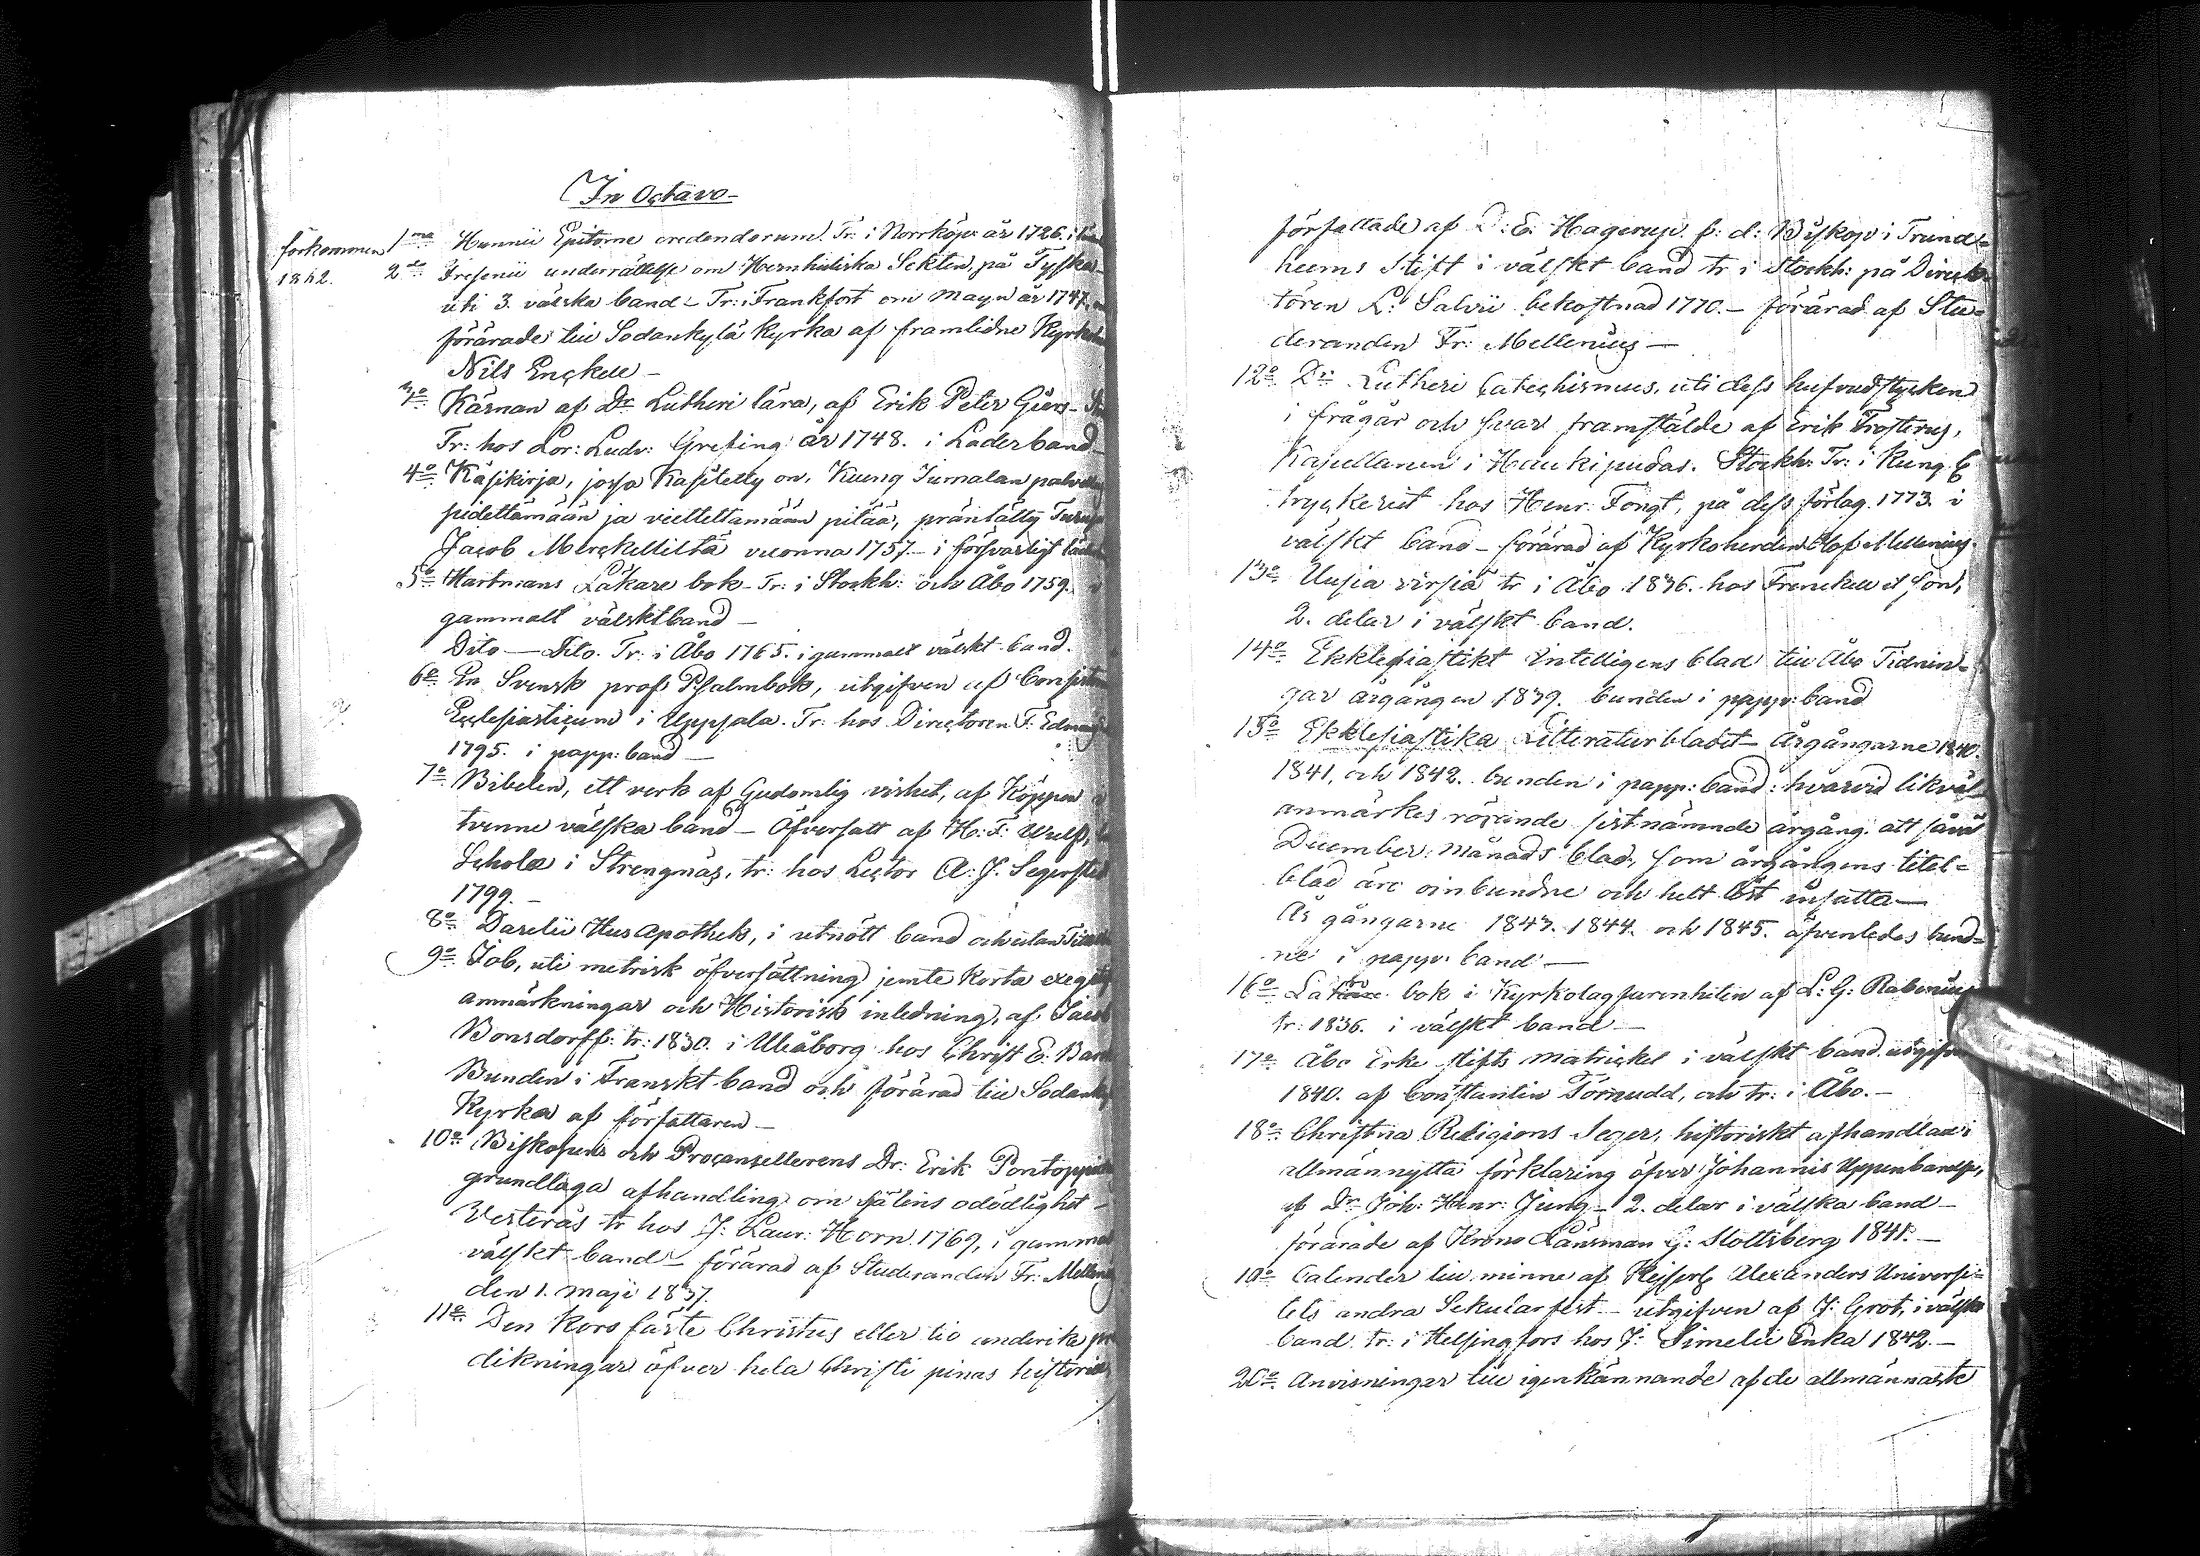 In Octavo
förkommen
1862.
1mo Hunnii Epitome credendorum. Tr: i Norrköp: år 1726. i
2do Fresenii underrättelse om Hernhutiska Sekten, på Tyska
uti 3. välska band – Tr: i Frankfort om Mayn år 1747.
förärade till Sodankylä kyrka af framlidne
Nils Enckell –
3o Kärnan af Dr Lutheri lära, af Erik Peter Gjers–
Tr: hos Lor: Ludv: Grefing år 1748. i Läderband
4o Käsikirja, josa Käsitetty on, Kuinga Jumalan
pidettämään ja vietteltämään pitää, präntätty
Jacob Merckelliltä vuonna 1757. – i försvarligt
5o Hartmans Läkare bok – Tr: i Stockh: och Åbo 1759.
gammalt välsktband –
Dito — Dito. Tr: i Åbo 1765. i gammalt välskt band.
6o En Svensk prof Psalmbok, utgifven af
Ecclesiasticum i Uppsala. Tr: hos Directoren F. Edman
1795. i papp: band —
7o Bibelen, ett verk af Gudomlig vishet, af Köppen
tvenne välska band – Öfversatt af H: F:
Schola i Strengnäs, tr: hos Lector A: J. Segerstedt
1799. –
8o Darelii Husapothek, i utnött band och utan
9o Job, uti metrisk öfversättning jemte korta
anmärkningar och Historisk inledning, af Jacob
Bonsdorff: tr: 1830. i Uleåborg hos Christ E: Barck
Bunden i Franskt band och förärad till
Kyrka af författaren –
10o Biskopens och Procanzellerens Dr: Erik
grundlaga afhandling om själens odödlighet –
Vesterås tr hos J: Laur: Horn 1769, i
välskt band – förärad af Studeranden Fr:
den 1. Maji 1837.
11o Den korsfäste Christus eller tio
dikningar öfver hela Christi pinas historia
författade af D: E: Hagerup f: d: Byskop i Trund=
heims Stift i välskt band tr i Stockh: på
tören L: Salvii bekostnad 1770. – förärad af Stu=
deranden Fr: Mellenius —
12o Dri Lutheri Catechismus, uti dess hufvudstycken
i frågar och svar framstälde af Erik Frosterus,
Kapellanen i Haukipudas. Stockh: Tr: i Kung
tryckeriet hos Henr: Fougt, på dess förlag. 1773. i
välskt band – förärad af Kyrkoherden Olof Mellenius.
13o Uusia virsiä tr i Åbo 1836. hos Frenckell et son,
2. delar i välskt band.
14o Ekklesiastikt Intelligens blad till Åbo Tidnin=
gar årgången 1839. bunden i papp: band
15o Ekklesiastika Litteraturbladet – Årgångarne 1840.
1841, och 1842. bunden i papp: band: hvarvid likväl
anmärkes rörande sistnämnde årgång. att såväl
December: månads blad, som årgångens titel=
blad äro oinbundne och helt löst insatta —
Årgångarne 1843. 1844. och 1845. äfvenledes bund=
ne i papp: band —
16o Läro bok i Kyrkolagfarenheten af L: G: Rabenius
tr: 1836. i välskt band —
17o Åbo Erke stifts matrickel i välskt band utgifven
1840. af Constantin Törnudd, och tr: i Åbo. –
18o Christna Religions Seger, historiskt afhandlad i
allmännytta förklaring öfver Johannis Uppenbarelse,
af Dr Joh: Henr: Jung – 2. delar i välska band –
förärade af Krono Länsman G: Stoltzberg 1841. –
10o Calender till minne af Kejserl: Alexanders Universi=
tets andra Sekularfest – utgifven af J: Grot, i välskt
band tr: i Helsingfors hos J: Simelii Enka 1842. –
20o Anvisningar till igenkännande af de allmännaste